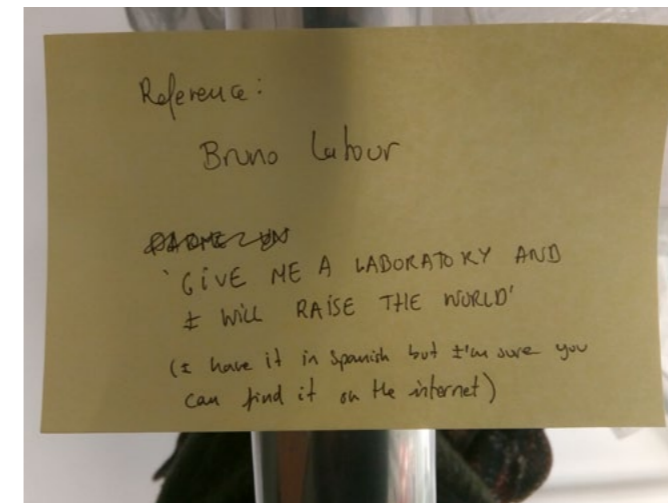 Reference:
Bruno Latour
DADME UN
'GIVE ME A LABORATORY AND
I WILL RAISE THE WORLD'
(I have it in Spanish but I'm sure you
can find it on the internet)